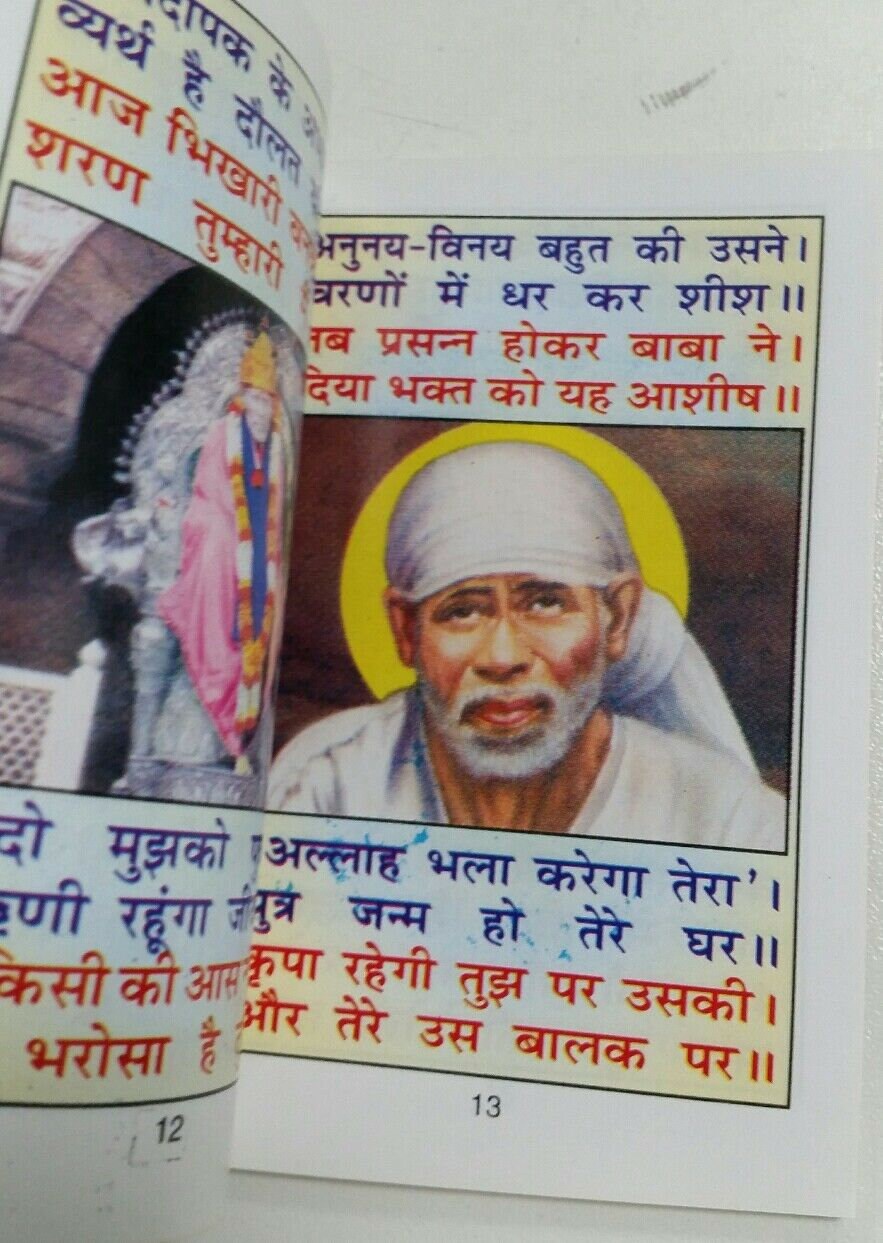 के
व्यर्थ है दौलत
आज भिखारी
शरण तुम्हारी
दो मुझको
रहूंगा
किसी की आस
भरोसा है
12
अनुनय-विनय बहुत की उसने।
चरणों में धर कर शीश॥
प्रसन्न होकर बाबा ने।
दिया भक्त को यह आशीष॥
अल्लाह भला करेगा तेरा'।
पुत्र जन्म हो तेरे घर॥
कृपा रहेगी तुझ पर उसकी।
और तेरे उस बालक पर॥
13